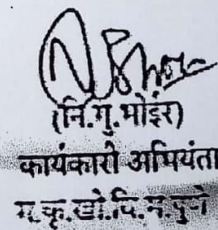 (नि.गु.मोईर)
कार्यकारी अभियंता
म.कृ.खो.वि.म.पुणे